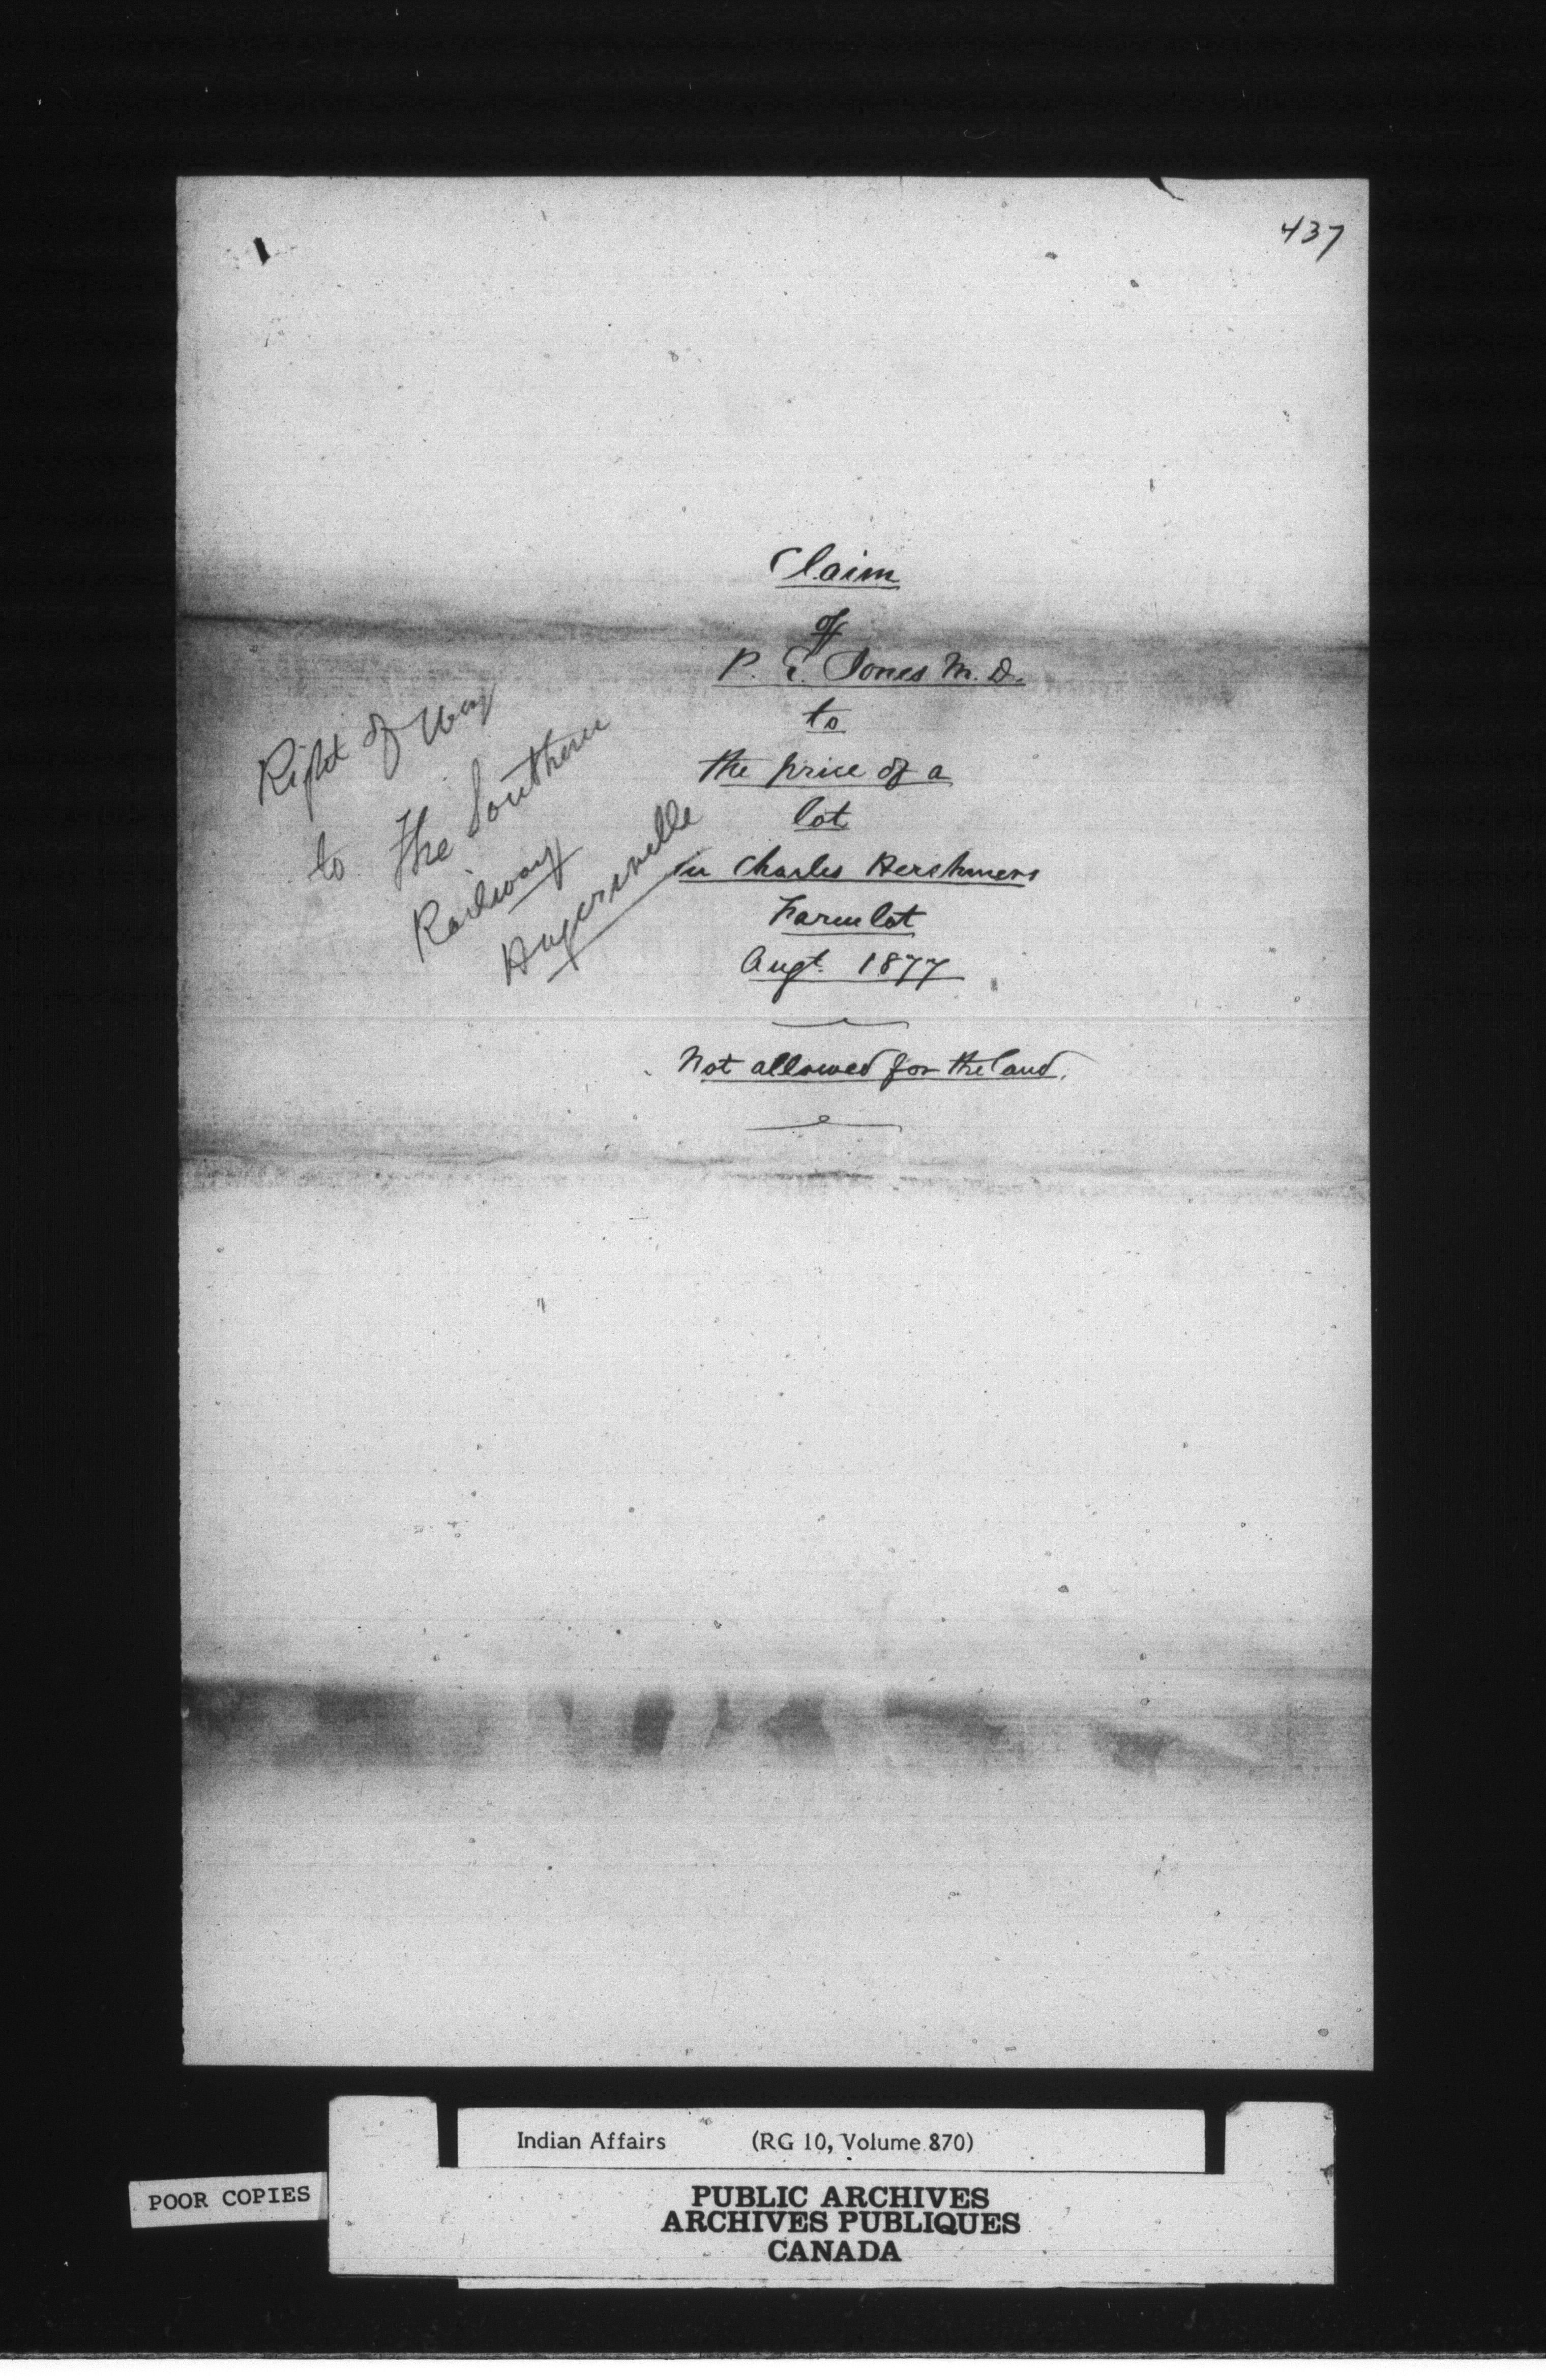 437
Claim
of
P. E. Jones M. D.
to
the price of a
lot
in Charles Hershmers
Farm lot
Augt. 1877
Not allowed for the land.
Right of Way
to the Southern
Railway
Hagersville
Indian Affairs (RG 10, Volume 870)
POOR COPIES
PUBLIC ARCHIVES
ARCHIVES PUBLIQUES
CANADA